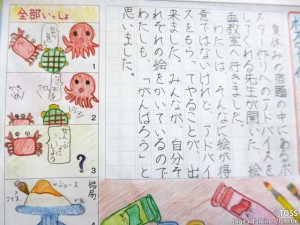 全部いっしょ
1
2
ぜんぶ
いっしょに
しよう
?
3
結局
アイス
ジュース
4
夏休みの宿題の中にあるポ
スター作りへのアドバイスを
してくれる先生が開いた、絵
画教室へ行きました。
わたしは、そんなに絵が得
意ではないけれど、アドバイ
スをもらってやることが、出
来ました。みんなが、自分そ
れぞれの絵をかいているので
わたしも、「がんばろう」と
思いました。
TOSS